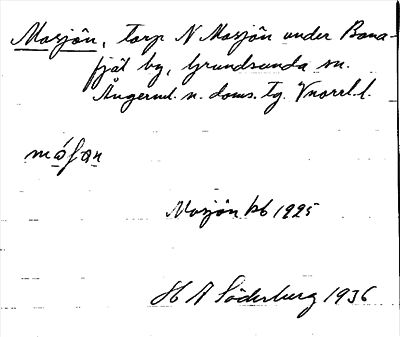 Mosjön, torp N Mosjön under Bona-
fjäl by, Grundsunda sn.
Ångerml. n. doms. tg. Vnorrl. l.
mósan
Mosjön kb 1925
H A Söderberg 1936